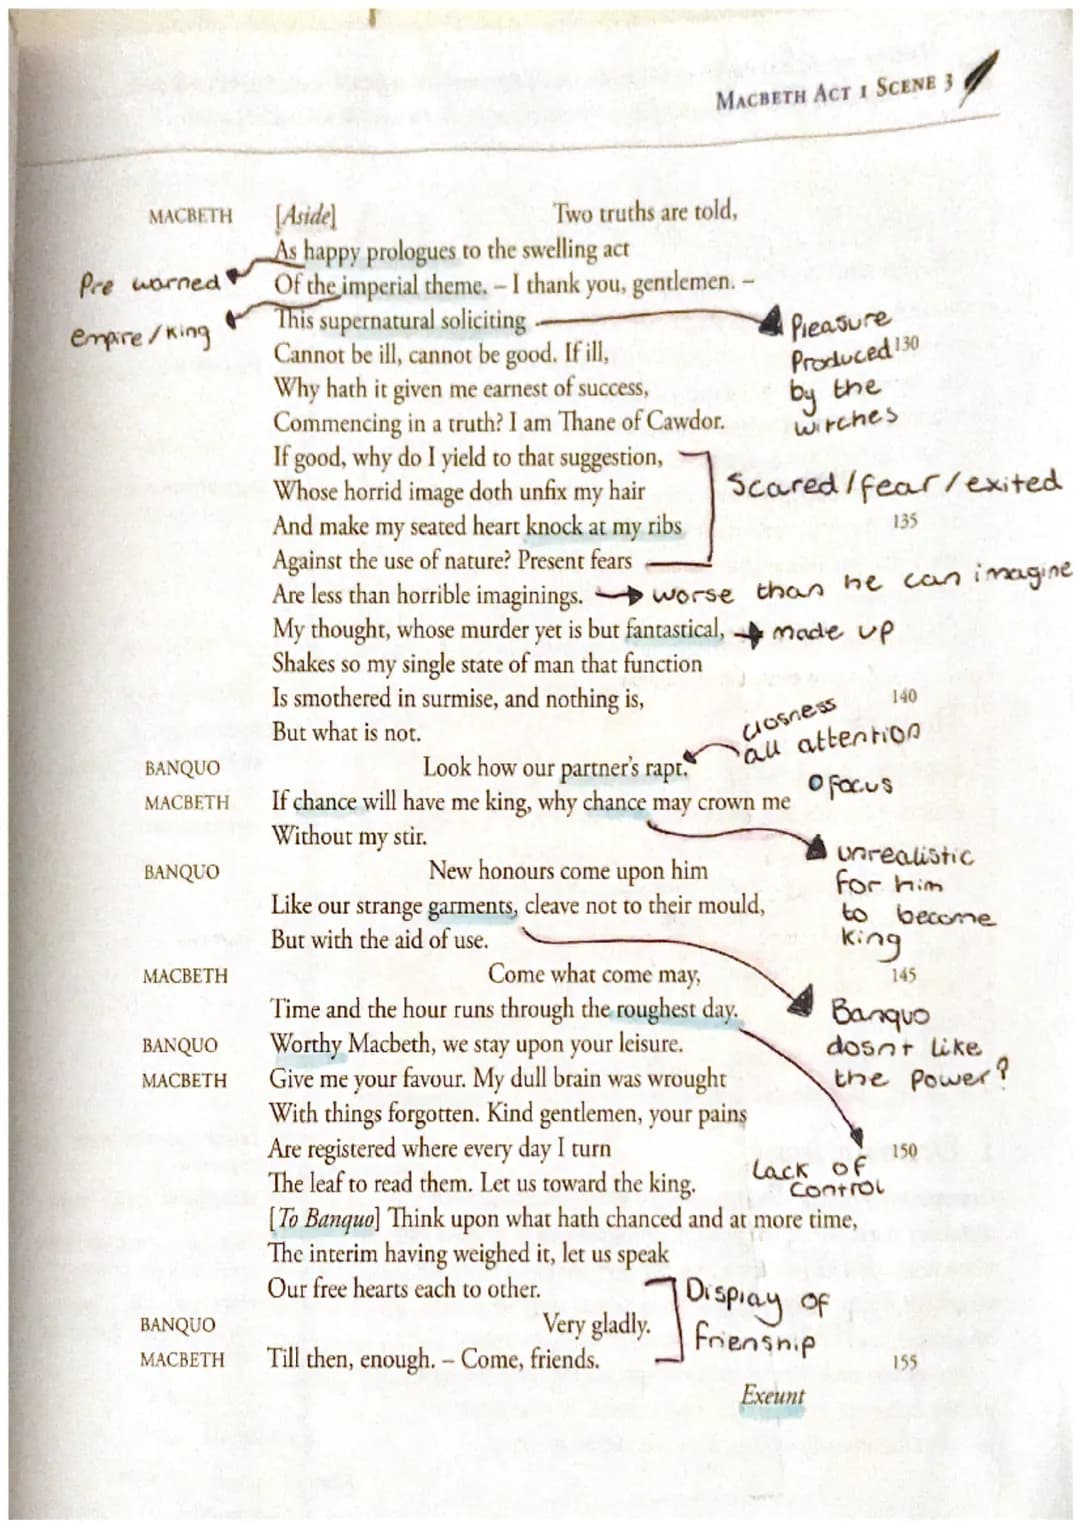 MACBETH ACT 1 SCENE 3
MACBETH [Aside] Two truths are told,
As happy prologues to the swelling act
Pre warned
Of the imperial theme. – I thank you, gentlemen. –
empire/king
This supernatural soliciting
Pleasure
Produced
by the
witches
Cannot be ill, cannot be good. If ill, 130
Why hath it given me earnest of success,
Commencing in a truth? I am Thane of Cawdor.
If good, why do I yield to that suggestion,
Whose horrid image doth unfix my hair
Scared/fear/exited
And make my seated heart knock at my ribs 135
Against the use of nature? Present fears
Are less than horrible imaginings.
worse than he can imagine
My thought, whose murder yet is but fantastical,
made up
Shakes so my single state of man that function
Is smothered in surmise, and nothing is, 140
But what is not.
closness
all attention
O focus
BANQUO Look how our partner's rapt.
MACBETH If chance will have me king, why chance may crown me
Without my stir.
unrealistic
for him
to become
king
BANQUO New honours come upon him
Like our strange garments, cleave not to their mould,
But with the aid of use.
MACBETH Come what come may, 145
Time and the hour runs through the roughest day.
Banquo
dosnt like
the power?
BANQUO Worthy Macbeth, we stay upon your leisure.
MACBETH Give me your favour. My dull brain was wrought
With things forgotten. Kind gentlemen, your pains
Are registered where every day I turn 150
Lack of
control
The leaf to read them. Let us toward the king.
[To Banquo] Think upon what hath chanced and at more time,
The interim having weighed it, let us speak
Our free hearts each to other.
Display of
frienship
BANQUO Very gladly.
MACBETH Till then, enough. – Come, friends. 155
Exeunt